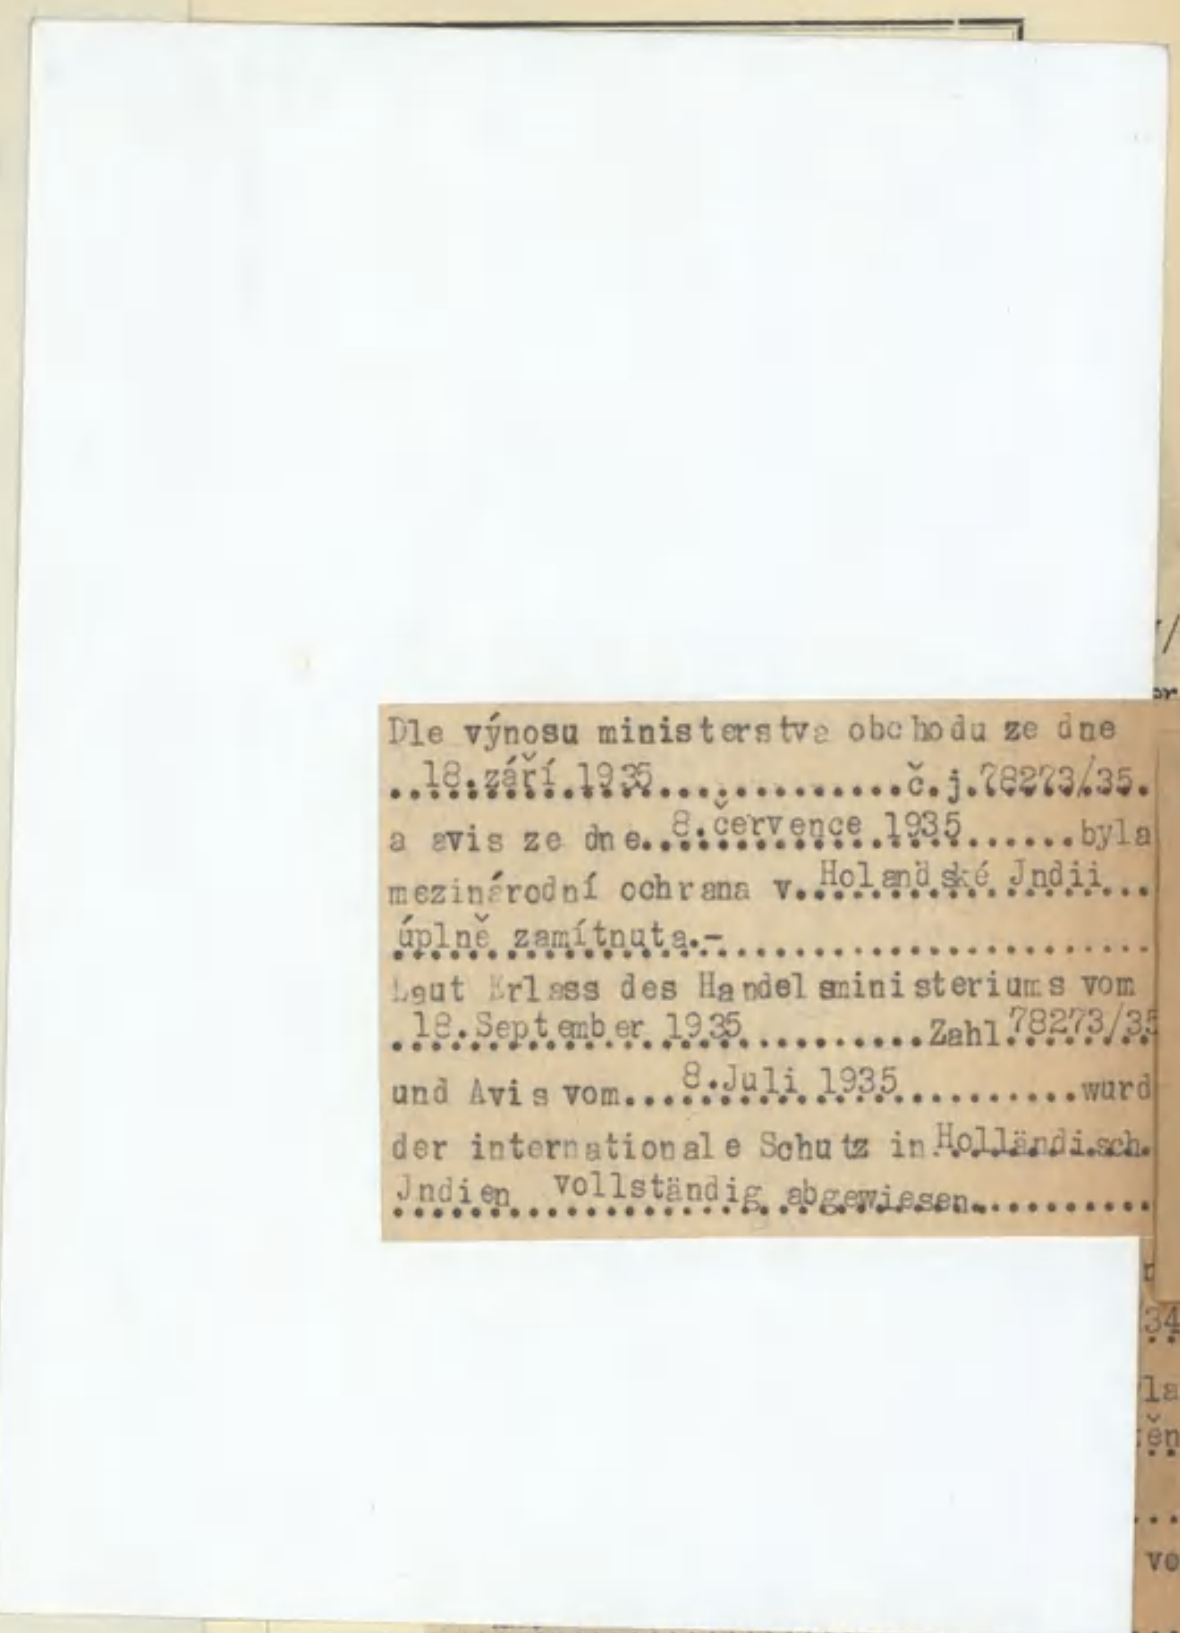 Dle výnosu ministerstva obchodu ze dne
..18.září 1935..............č.j.78273/35.
a avis ze dne..8.července 1935......byla
mezinárodní ochrana v..Holandské Jndii...
úplně zamítnuta.-........................
Laut Erlass des Handelsministeriums vom
.18.September 1935..........Zahl 78273/35
und Avis vom...8.Juli 1935..........wurd
der internationale Schutz in Holländisch.
Jndien vollständig abgewiesen...........
34
la
ěn
...
ve